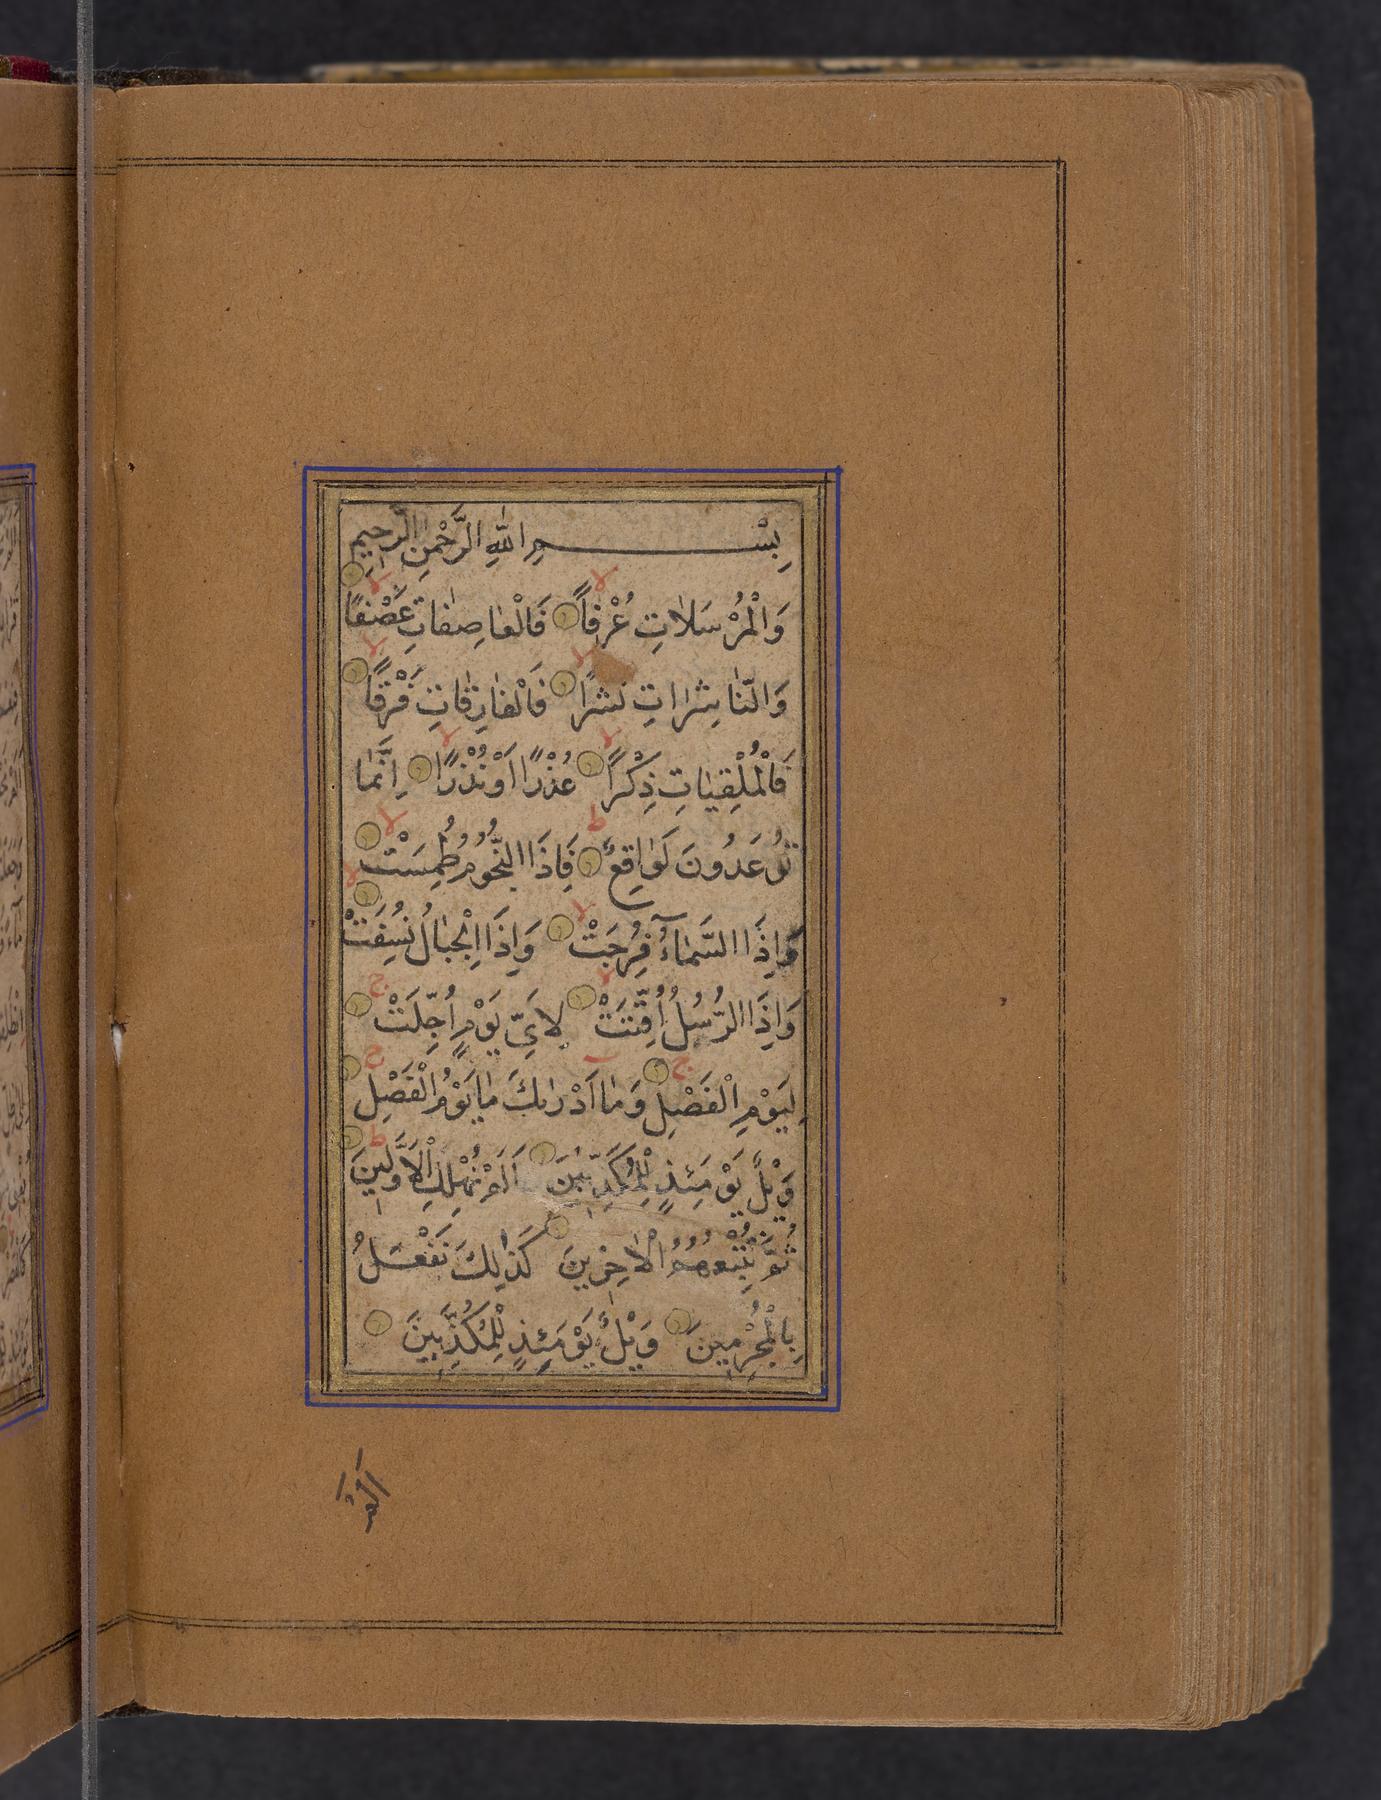 بِسْمِ اللّٰهِ الرَّحْمٰنِ الرَّحِيمِ
وَالْمُرْسَلَاتِ عُرْفًا فَالْعَاصِفَاتِ عَصْفًا
وَالنَّاشِرَاتِ نَشْرًا فَالْفَارِقَاتِ فَرْقًا
فَالْمُلْقِيَاتِ ذِكْرًا عُذْرًا اَوْ نُذْرًا اِنَّمَا
تُوعَدُونَ لَوَاقِعٌ فَاِذَا النُّجُومُ طُمِسَتْ
وَاِذَا السَّمَآءُ فُرِجَتْ وَاِذَا الْجِبَالُ نُسِفَتْ
وَاِذَا الرُّسُلُ اُقِّتَتْ لِاَيِّ يَوْمٍ اُجِّلَتْ
لِيَوْمِ الْفَصْلِ وَمَا اَدْرٰىكَ مَا يَوْمُ الْفَصْلِ
وَيْلٌ يَوْمَئِذٍ لِلْمُكَذِّبِينَ اَلَمْ نُهْلِكِ الْاَوَّلِينَ
ثُمَّ نُتْبِعُهُمُ الْاٰخِرِينَ كَذٰلِكَ نَفْعَلُ
بِالْمُجْرِمِينَ وَيْلٌ يَوْمَئِذٍ لِلْمُكَذِّبِينَ